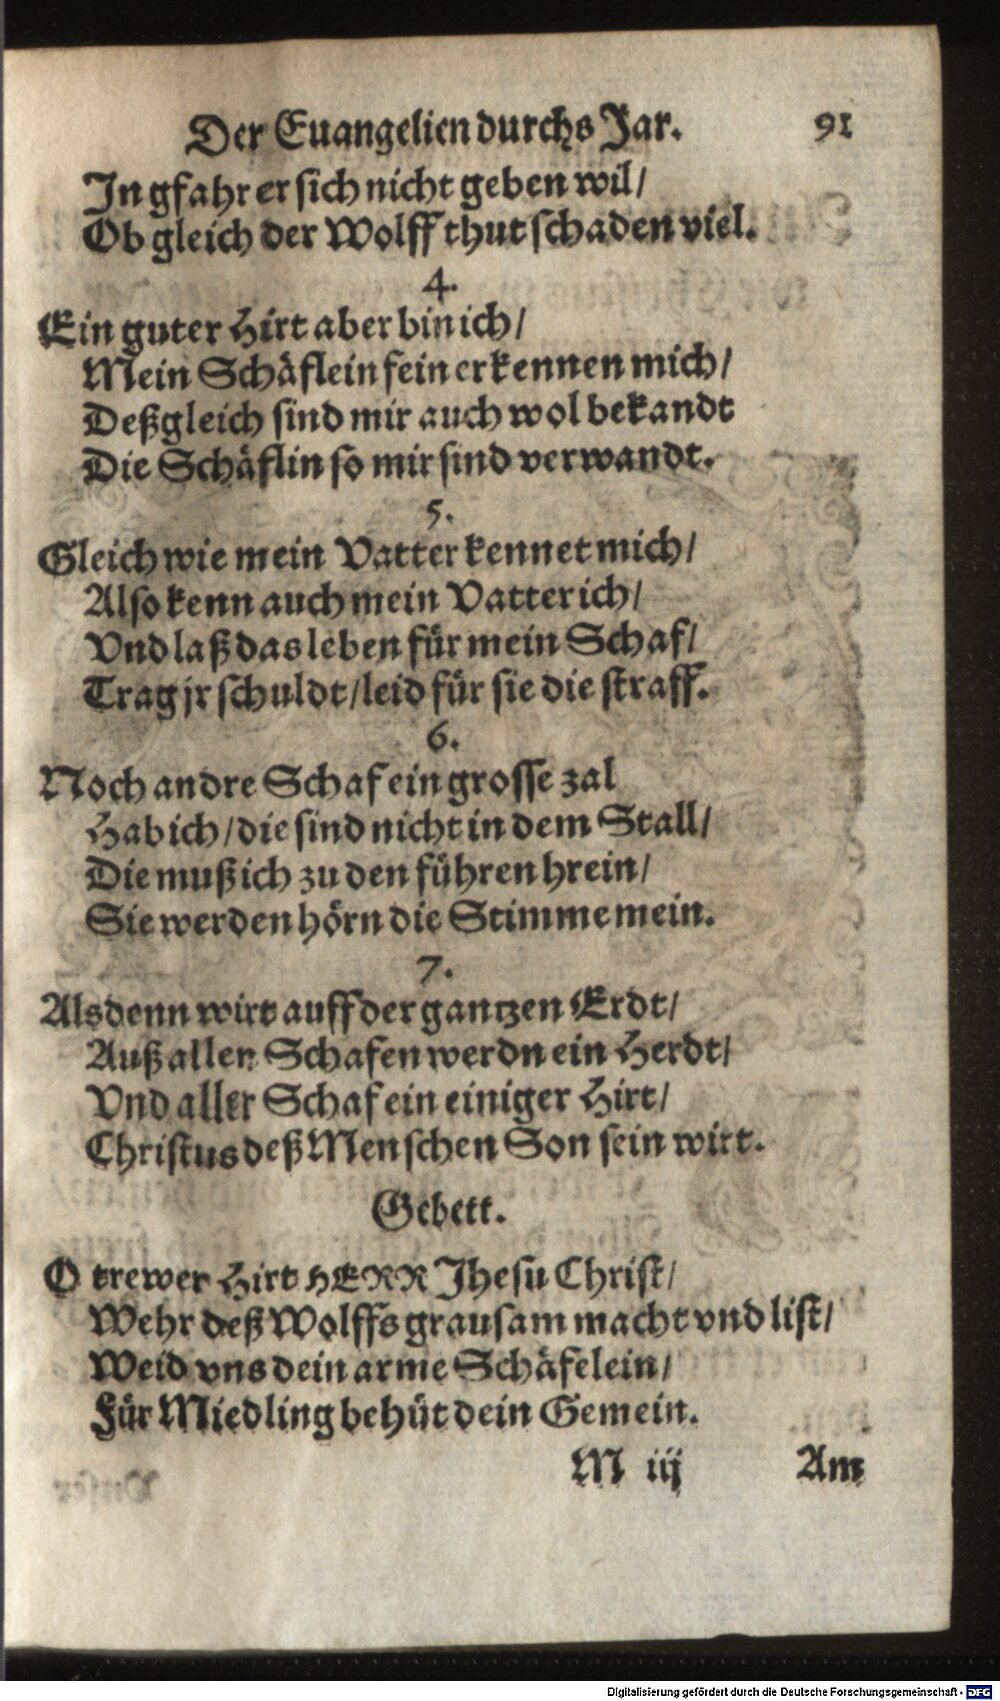 Der Euangelien durchs Jar. 91
In gfahr er sich nicht geben wil/
Ob gleich der Wolff thut schaden viel.
4.
Ein guter Hirt aber bin ich/
Mein Schäflein fein erkennen mich/
Deßgleich sind mir auch wol bekandt
Die Schäflin so mir sind verwandt.
5.
Gleich wie mein Vatter kennet mich/
Also kenn auch mein Vatter ich/
Vnd laß das leben für mein Schaf/
Trag jr schuldt/leid für sie die straff.
6.
Noch andre Schaf ein grosse zal
Hab ich/die sind nicht in dem Stall/
Die muß ich zu den führen hrein/
Sie werden hörn die Stimme mein.
7.
Alsdenn wirt auff der gantzen Erdt/
Auß allen Schafen werdn ein Herdt/
Vnd aller Schaf ein einiger Hirt/
Christus deß Menschen Son sein wirt.
Gebett.
O trewer Hirt HERR Jhesu Christ/
Wehr deß Wolffs grausam macht vnd list/
Weid vns dein arme Schäfelein/
Für Miedling behüt dein Gemein.
M iij Am
Digitalisierung gefördert durch die Deutsche Forschungsgemeinschaft - DFG